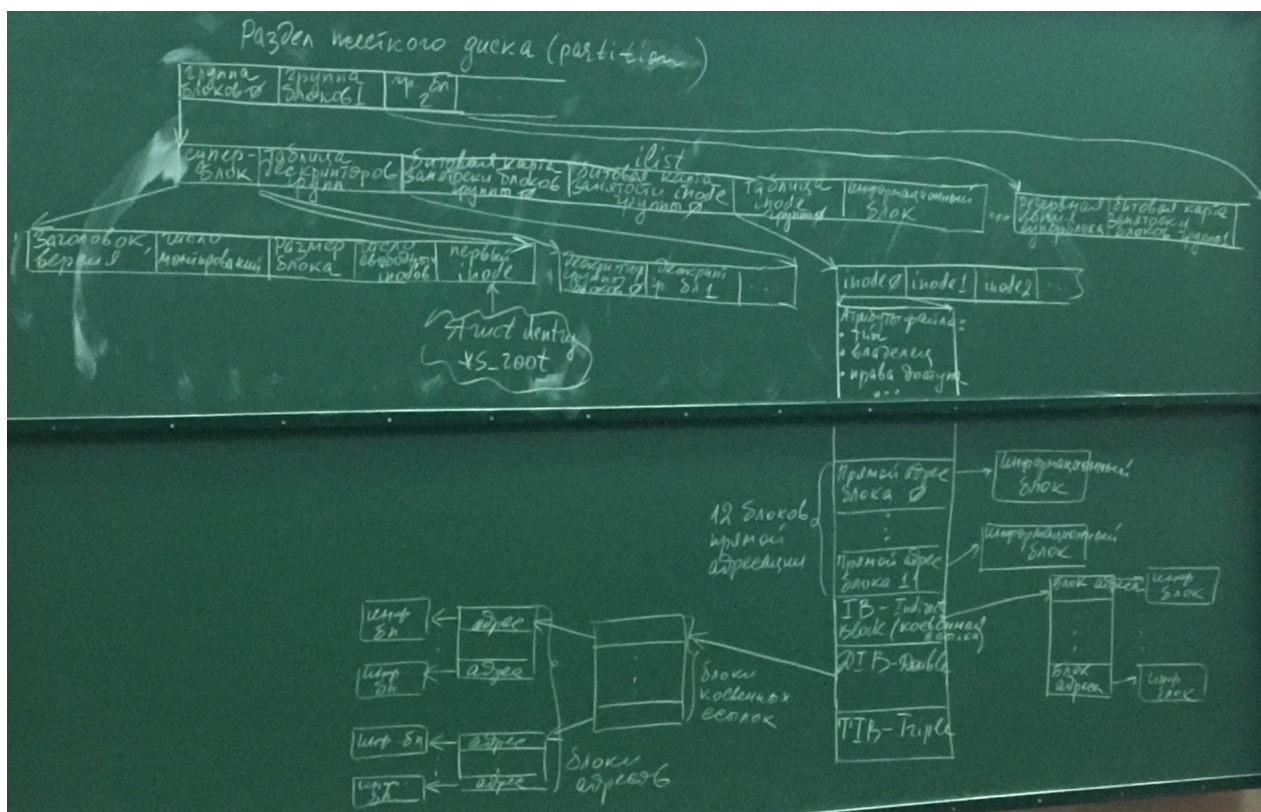 Раздел жесткого диска (partition)
группа
блоков 0
группа
блоков 1
гр. бл
2
супер-
блок
таблица
дескрипторов
групп
битовая карта
занятости блоков
группы 0
ilist
битовая карта
занятости inode
группы 0
таблица
inode
группы
информационный
блок
...
резервная
копия
суперблока
битовая карта
занятости
блоков группы 1
Заголовок,
версия
число
монтирований
размер
блока
число
свободных
inodов
первый
inode
дескриптор
группы
блоков 0
дескрип
гр. бл 1
...
inode0
inode1
inode2
...
struct dentry
*s_root
Атрибуты файла:
• тип
• владелец
• права доступа
...
12 блоков
прямой
адресации
Прямой адрес
блока 0
Информационный
блок
Прямой адрес
блока 11
Информационный
блок
IB-Indirect
Block (косвенная
ссылка)
Блок адреса
инф.
блок
Блок
адреса
инф.
блок
DIB-Double
TIB-Triple
блоки
косвенных
ссылок
инф
бл
адрес
инф.
бл
адрес
инф бл
адрес
инф.
бл
адрес
блоки
адресов